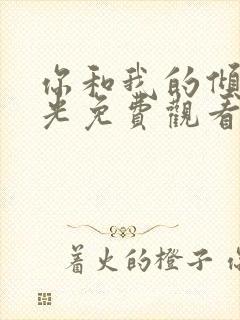 你和我的傾
光免費觀看
着火的橙子 你